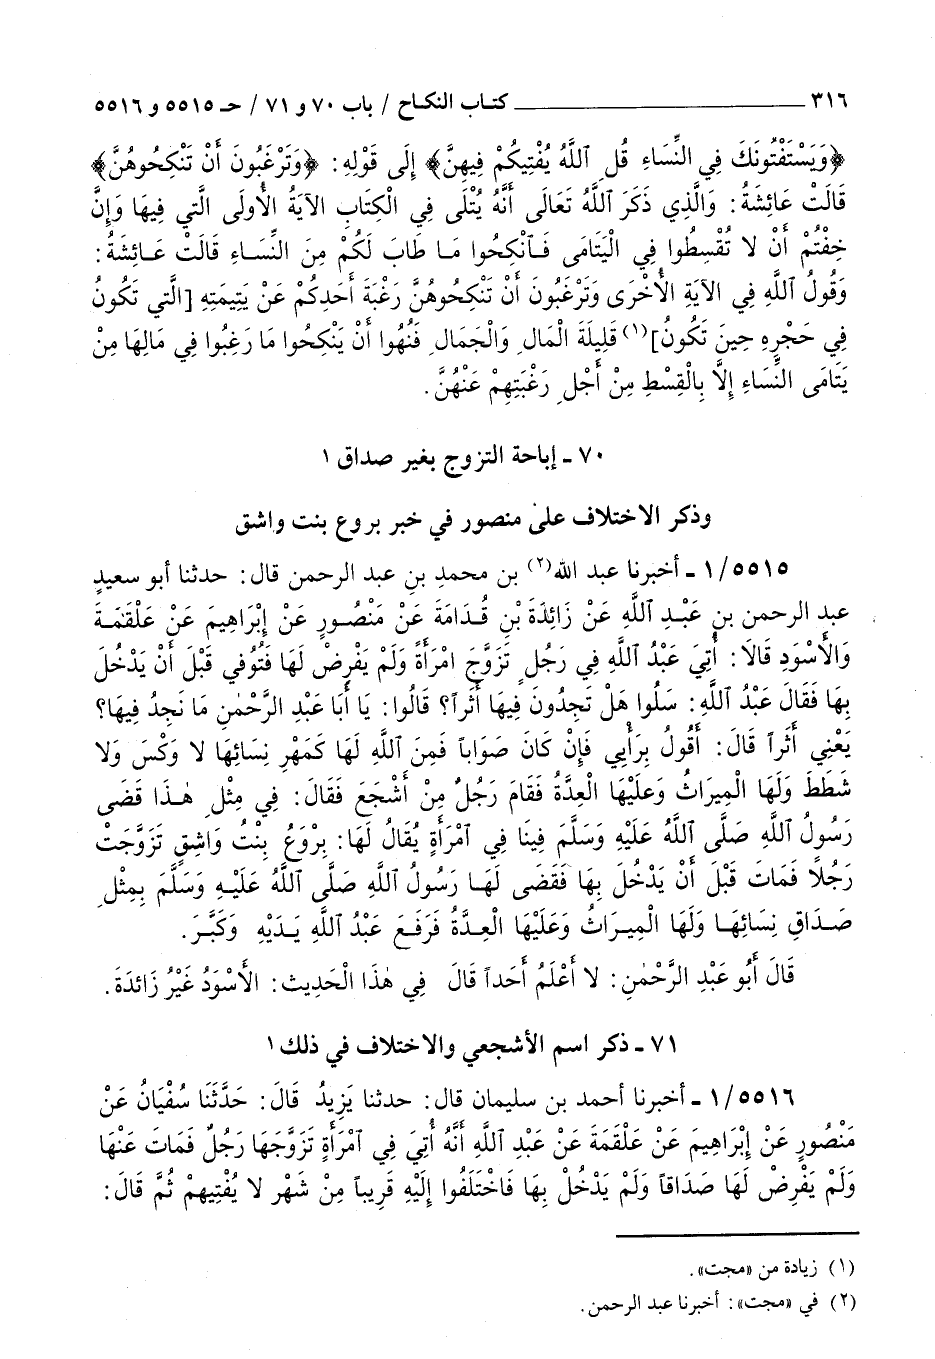 ٣١٦ ــــــــــــــــــــ كتاب النكاح / باب ٧٠ و ٧١ / حـ ٥٥١٥ و ٥٥١٦
﴿وَيَسْتَفْتُونَكَ فِي النِّسَاءِ قُلِ ٱللَّهُ يُفْتِيكُمْ فِيهِنَّ﴾ إِلَى قَوْلِهِ: ﴿وَتَرْغَبُونَ أَنْ تَنْكِحُوهُنَّ﴾
قَالَتْ عَائِشَةُ: وَالَّذِي ذَكَرَ ٱللَّهُ تَعَالَى أَنَّهُ يُتْلَى فِي الْكِتَابِ الآيَةُ الأُولَى الَّتِي فِيهَا وَإِنْ
خِفْتُمْ أَنْ لا تُقْسِطُوا فِي الْيَتَامَى فَٱنْكِحُوا مَا طَابَ لَكُمْ مِنَ النِّسَاءِ قَالَتْ عَائِشَةُ:
وَقَوْلُ ٱللَّهِ فِي الآيَةِ الأُخْرَى وَتَرْغَبُونَ أَنْ تَنْكِحُوهُنَّ رَغْبَةَ أَحَدِكُمْ عَنْ يَتِيمَتِهِ [الَّتِي تَكُونُ
فِي حَجْرِهِ حِينَ تَكُونُ](١) قَلِيلَةَ الْمَالِ وَالْجَمَالِ فَنُهُوا أَنْ يَنْكِحُوا مَا رَغِبُوا فِي مَالِهَا مِنْ
يَتَامَى النِّسَاءِ إِلَّا بِالْقِسْطِ مِنْ أَجْلِ رَغْبَتِهِمْ عَنْهُنَّ.
٧٠ ـ إباحة التزوج بغير صداق ١
وذكر الاختلاف على منصور في خبر بروع بنت واشق
٥٥١٥/ ١ ـ أخبرنا عبد الله(٢) بن محمد بن عبد الرحمن قال: حدثنا أبو سعيد
عبد الرحمن بن عَبْدِ ٱللَّهِ عَنْ زَائِدَةَ بْنِ قُدَامَةَ عَنْ مَنْصُورٍ عَنْ إِبْرَاهِيمَ عَنْ عَلْقَمَةَ
وَالأَسْوَدِ قَالَا: أُتِيَ عَبْدُ اللَّهِ فِي رَجُلٍ تَزَوَّجَ امْرَأَةً وَلَمْ يَفْرِضْ لَهَا فَتُوُفِّيَ قَبْلَ أَنْ يَدْخُلَ
بِهَا فَقَالَ عَبْدُ ٱللَّهِ: سَلُوا هَلْ تَجِدُونَ فِيهَا أَثَراً؟ قَالُوا: يَا أَبَا عَبْدِ الرَّحْمٰنِ مَا نَجِدُ فِيهَا؟
يَعْنِي أَثَراً قَالَ: أَقُولُ بِرَأْيِي فَإِنْ كَانَ صَوَاباً فَمِنَ اللَّهِ لَهَا كَمَهْرِ نِسَائِهَا لا وَكْسَ وَلا
شَطَطَ وَلَهَا الْمِيرَاثُ وَعَلَيْهَا الْعِدَّةُ فَقَامَ رَجُلٌ مِنْ أَشْجَعَ فَقَالَ: فِي مِثْلِ هٰذَا قَضَى
رَسُولُ ٱللَّهِ صَلَّى ٱللَّهُ عَلَيْهِ وَسَلَّمَ فِينَا فِي ٱمْرَأَةٍ يُقَالُ لَهَا: بِرْوَعُ بِنْتُ وَاشِقٍ تَزَوَّجَتْ
رَجُلاً فَمَاتَ قَبْلَ أَنْ يَدْخُلَ بِهَا فَقَضَى لَهَا رَسُولُ اللَّهِ صَلَّى ٱللَّهُ عَلَيْهِ وَسَلَّمَ بِمِثْلِ
صَدَاقِ نِسَائِهَا وَلَهَا الْمِيرَاثُ وَعَلَيْهَا الْعِدَّةُ فَرَفَعَ عَبْدُ ٱللَّهِ يَدَيْهِ وَكَبَّرَ.
قَالَ أَبُو عَبْدِ الرَّحْمٰنِ: لا أَعْلَمُ أَحَداً قَالَ فِي هٰذَا الْحَدِيثِ: الأَسْوَدُ غَيْرُ زَائِدَةَ.
٧١ ـ ذكر اسم الأشجعي والاختلاف في ذلك ١
٥٥١٦/ ١ ـ أخبرنا أحمد بن سليمان قال: حدثنا يَزِيدُ قَالَ: حَدَّثَنَا سُفْيَانُ عَنْ
مَنْصُورٍ عَنْ إِبْرَاهِيمَ عَنْ عَلْقَمَةَ عَنْ عَبْدِ اللَّهِ أَنَّهُ أُتِيَ فِي ٱمْرَأَةٍ تَزَوَّجَهَا رَجُلٌ فَمَاتَ عَنْهَا
وَلَمْ يَفْرِضْ لَهَا صَدَاقاً وَلَمْ يَدْخُلْ بِهَا فَاخْتَلَفُوا إِلَيْهِ قَرِيباً مِنْ شَهْرٍ لا يُفْتِيهِمْ ثُمَّ قَالَ:
(١) زيادة من «مجت».
(٢) في «مجت»: أخبرنا عبد الرحمن.